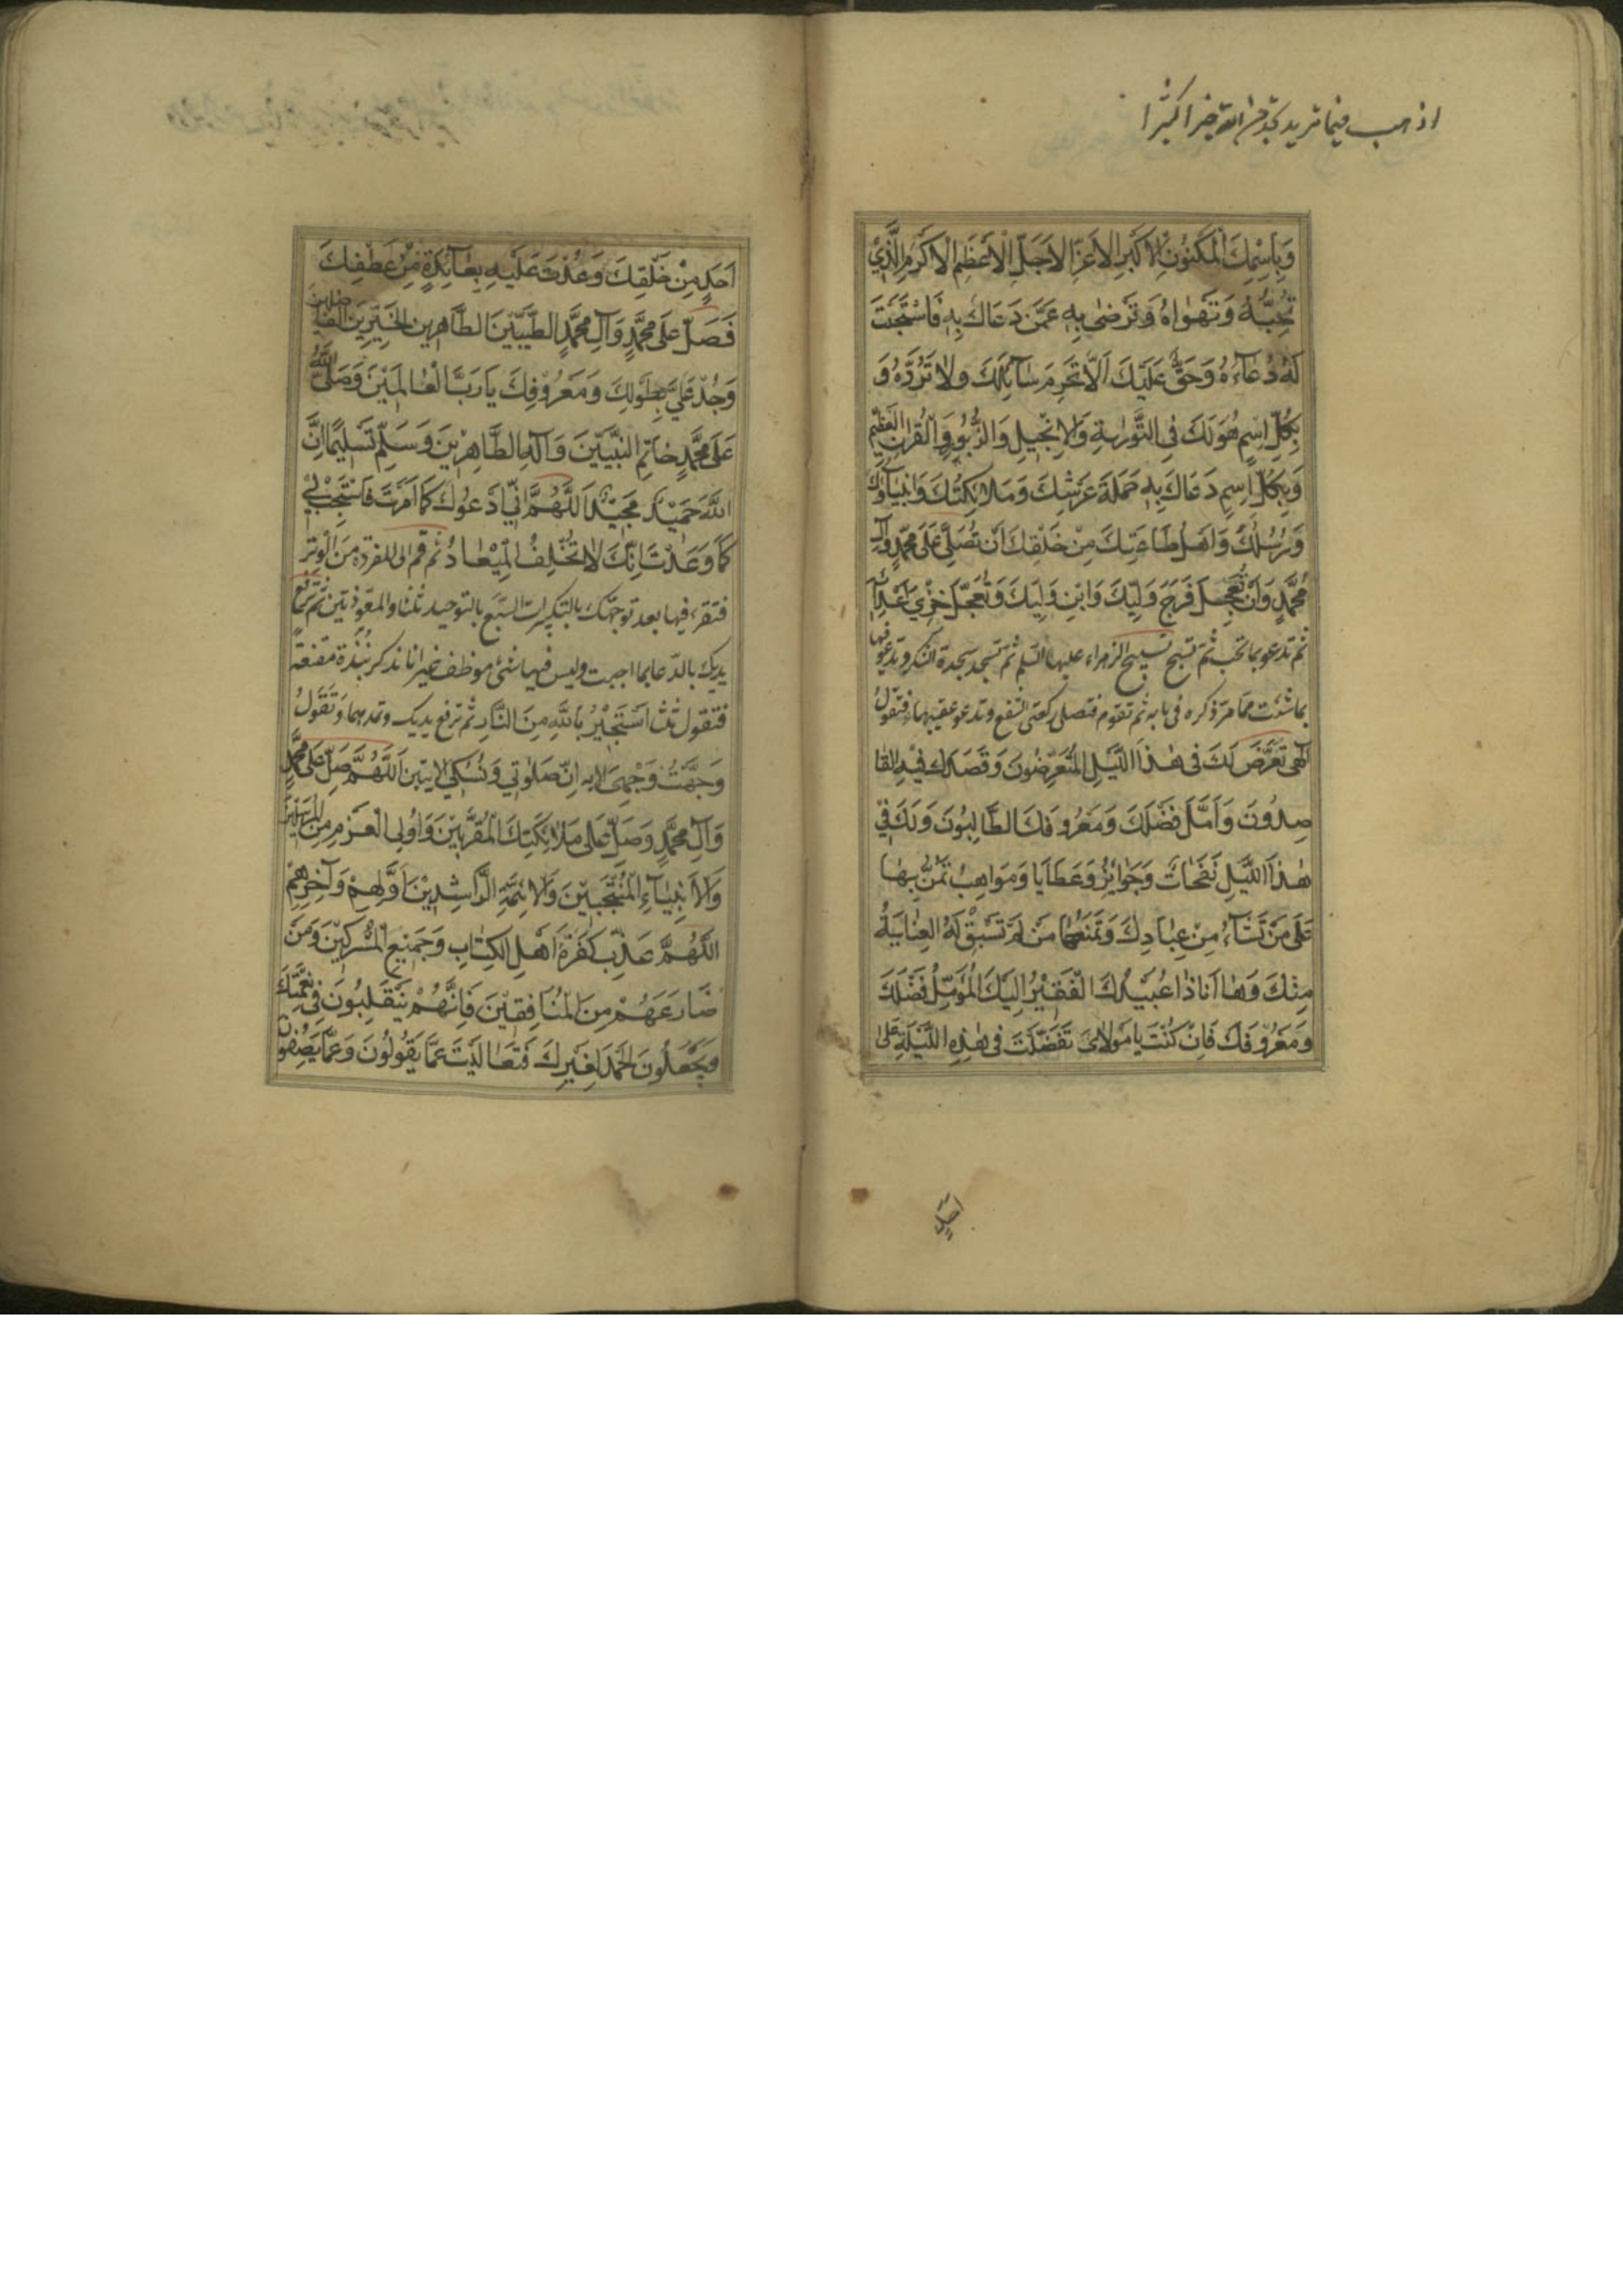 اذهب فيما تريد تجد من الله خيرا كثيرا
وَبِاسْمِكَ الْمَكْنُونِ الْاَكْبَرِ الْاَعَزِّ الْاَجَلِّ الْاَعْظَمِ الْاَكْرَمِ الَّذِي
تُحِبُّهُ وَتَهْوَاهُ وَتَرْضٰى بِهِ عَمَّنْ دَعَاكَ بِهِ فَاسْتَجَبْتَ
لَهُ دُعَآءَهُ وَحَقٌّ عَلَيْكَ اَلَّا تَحْرِمَ سَآئِلَكَ وَلَا تَرُدَّهُ وَ
بِكُلِّ اسْمٍ هُوَ لَكَ فِي التَّوْرٰيةِ وَالْاِنْجِيلِ وَالزَّبُورِ وَالْقُرْاٰنِ الْعَظِيمِ
وَبِكُلِّ اسْمٍ دَعَاكَ بِهِ حَمَلَةُ عَرْشِكَ وَمَلَائِكَتُكَ وَاَنْبِيَآؤُكَ
وَرُسُلُكَ وَاَهْلُ طَاعَتِكَ مِنْ خَلْقِكَ اَنْ تُصَلِّيَ عَلَى مُحَمَّدٍ وَآلِ
مُحَمَّدٍ وَاَنْ تُعَجِّلَ فَرَجَ وَلِيِّكَ وَابْنِ وَلِيِّكَ وَتُعَجِّلَ خِزْيَ اَعْدَآئِهِ
ثم تدعو بما تحب ثم تسبح تسبيح الزهراء عليها السلم ثم تسجد سجدة الشكر وتدعو فيها
بما شئت مما مر ذكره في بابه ثم تقوم فتصلى ركعتى الشفع وتدعو عقيبهما فتقول
اِلٰهِي تَعَرَّضَ لَكَ فِي هٰذَا اللَّيْلِ الْمُتَعَرِّضُونَ وَقَصَدَكَ فِيهِ الْقَا
صِدُونَ وَاَمَّلَ فَضْلَكَ وَمَعْرُوفَكَ الطَّالِبُونَ وَلَكَ فِي
هٰذَا اللَّيْلِ نَفَحَاتٌ وَجَوَائِزُ وَعَطَايَا وَمَوَاهِبُ تَمُنُّ بِهَا
عَلَى مَنْ تَشَآءُ مِنْ عِبَادِكَ وَتَمْنَعُهَا مَنْ لَمْ تَسْبِقْ لَهُ الْعِنَايَةُ
مِنْكَ وَهَا اَنَا ذَا عُبَيْدُكَ الْفَقِيرُ اِلَيْكَ الْمُؤَمِّلُ فَضْلَكَ
وَمَعْرُوفَكَ فَاِنْ كُنْتَ يَا مَوْلَايَ تَفَضَّلْتَ فِي هٰذِهِ اللَّيْلَةِ عَلَى
احد
اَحَدٍ مِنْ خَلْقِكَ وَعُدْتَ عَلَيْهِ بِعَآئِدَةٍ مِنْ عَطْفِكَ
فَصَلِّ عَلَى مُحَمَّدٍ وَآلِ مُحَمَّدٍ الطَّيِّبِينَ الطَّاهِرِينَ الْخَيِّرِينَ الْفَاضِلِينَ
وَجُدْ عَلَيَّ بِطَوْلِكَ وَمَعْرُوفِكَ يَا رَبَّ الْعَالَمِينَ وَصَلَّى اللهُ
عَلَى مُحَمَّدٍ خَاتِمِ النَّبِيِّينَ وَآلِهِ الطَّاهِرِينَ وَسَلَّمَ تَسْلِيمًا اِنَّ
اللهَ حَمِيدٌ مَجِيدٌ اَللّٰهُمَّ اِنِّي اَدْعُوكَ كَمَا اَمَرْتَ فَاسْتَجِبْ لِي
كَمَا وَعَدْتَ اِنَّكَ لَا تُخْلِفُ الْمِيعَادَ ثم قم الى المفردة من الوتر
فتقرء فيها بعد توجهك بالتكبيرات السبع بالتوحيد ثلثا والمعوذتين ثم ترفع
يديك بالدعا بما احببت وليس فيها شئ موظف غير انا نذكر نبذة مقنعة
فتقول ثلث اَسْتَجِيرُ بِاللهِ مِنَ النَّارِ ثم ترفع يديك وتمدهما وَتَقُولُ
وَجَّهْتُ وَجْهِيَ الايه اِنَّ صَلٰوتِي وَنُسُكِي الايتين اَللّٰهُمَّ صَلِّ عَلَى مُحَمَّدٍ
وَآلِ مُحَمَّدٍ وَصَلِّ عَلَى مَلَائِكَتِكَ الْمُقَرَّبِينَ وَاُولِي الْعَزْمِ مِنَ الْمُرْسَلِينَ
وَالْاَنْبِيَآءِ الْمُنْتَجَبِينَ وَالْاَئِمَّةِ الرَّاشِدِينَ اَوَّلِهِمْ وَآخِرِهِمْ
اَللّٰهُمَّ عَذِّبْ كَفَرَةَ اَهْلِ الْكِتَابِ وَجَمِيعَ الْمُشْرِكِينَ وَمَنْ
ضَارَعَهُمْ مِنَ الْمُنَافِقِينَ فَاِنَّهُمْ يَتَقَلَّبُونَ فِي نِعْمَتِكَ
وَيَجْعَلُونَ الْحَمْدَ لِغَيْرِكَ فَتَعَالَيْتَ عَمَّا يَقُولُونَ وَعَمَّا يَصِفُونَ